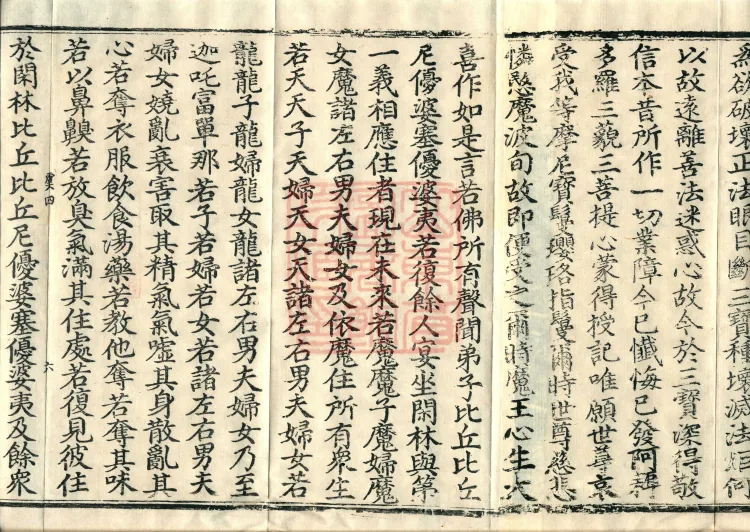 為欲破壞正法眼目斷三寶種壞滅法
以故遠離善法迷惑心故今於三寶深得敬
信本昔所作一切業障今已懺悔已發阿耨
多羅三藐三菩提心蒙得授記唯願世尊哀
受我等摩尼寶鬘瓔珞指鬘爾時世尊慈悲
憐愍魔波旬故即便受之爾時魔王心生大
喜作如是言若佛所有聲聞弟子比丘比丘
尼優婆塞優婆夷若復餘人宴坐閑林與第
一義相應住者現在未來若魔魔子魔婦魔
女魔諸左右男夫婦女及依魔住所有眾生
若天天子天婦天女天諸左右男夫婦女若
龍龍子龍婦龍女龍諸左右男夫婦女乃至
迦吒富單那若子若婦若女若諸左右男夫
婦女嬈亂衰害取其精氣氣噓其身散亂其
心若奪衣服飲食湯藥若教他奪若奪其味
若以鼻齅若放臭氣滿其住處若復見彼住
四 六
於閑林比丘比丘尼優婆塞優婆夷及餘眾